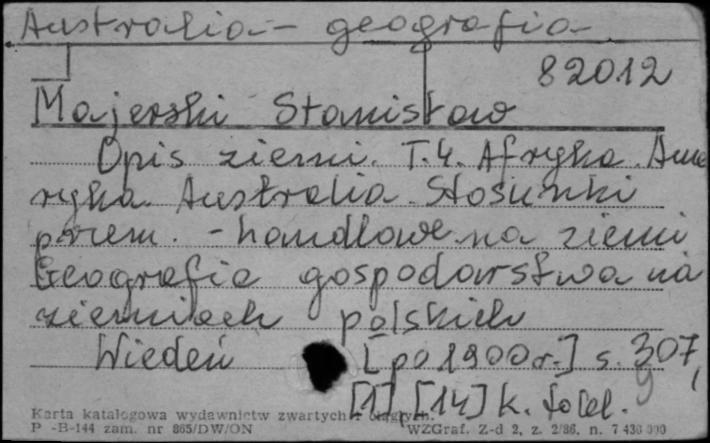 Australia - geografia
82012
Majerski Stanisław
Opis ziemi. T. 4. Afryka. Ame
ryka. Australia. Stosunki
przem. - handlowe na ziemi
Geografia gospodarstwa na
ziemiach polskich
Wiedeń [po 1900 r.] s. 307,
[1], [14] k. tabl. 9
Karta katalogowa wydawnictw zwartych i ciągłych.
P -B-144 zam. nr 865/DW/ON WZGraf. Z-d 2, z. 2/86, n. 7 430 000